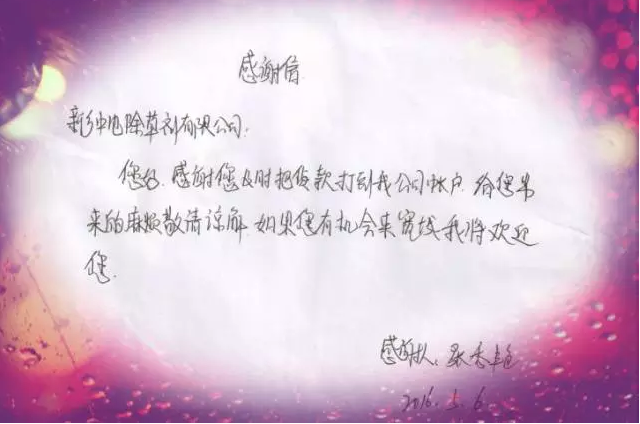 感谢信
新乡中电除草剂有限公司:
您好.感谢您及时把货款打到我公司帐户.给您带
来的麻烦敬请谅解.如果您有机会来宽线我将欢迎
您.
感谢人:张香艳
2016.5.6